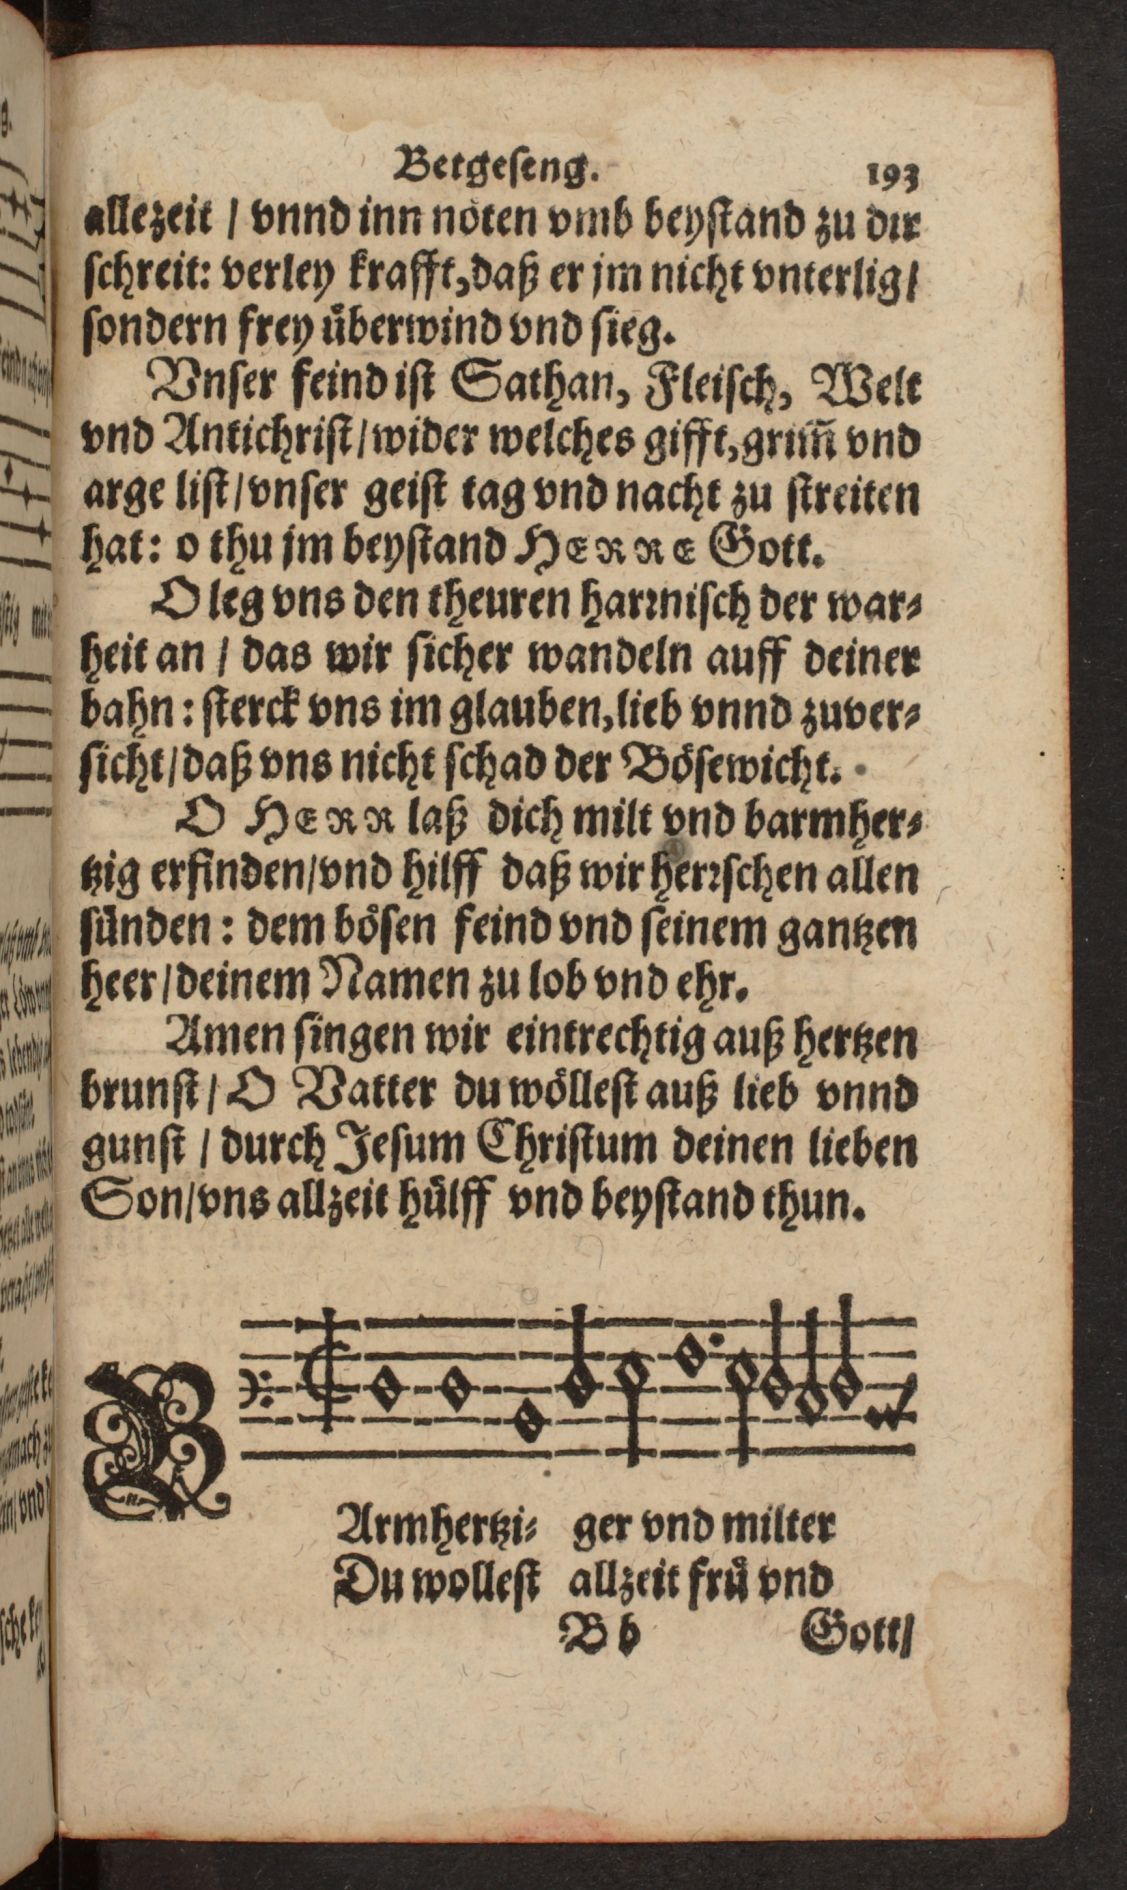 Betgeseng. 193
allezeit / vnnd inn nöten vmb beystand zu dir
schreit: verley krafft, daß er jm nicht vnterlig/
sondern frey überwind vnd sieg.
Vnser feind ist Sathan, Fleisch, Welt
vnd Antichrist/wider welches gifft, grim̃ vnd
arge list/vnser geist tag vnd nacht zu streiten
hat: o thu jm beystand HERRE Gott.
O leg vns den theuren harꝛnisch der war⸗
heit an / das wir sicher wandeln auff deiner
bahn: sterck vns im glauben, lieb vnnd zuver⸗
sicht/daß vns nicht schad der Bösewicht.
O HERR laß dich milt vnd barmher⸗
tzig erfinden/vnd hilff daß wir herꝛschen allen
sünden: dem bösen feind vnd seinem gantzen
heer/deinem Namen zu lob vnd ehr.
Amen singen wir eintrechtig auß hertzen
brunst/ O Vatter du wöllest auß lieb vnnd
gunst / durch Jesum Christum deinen lieben
Son/vns allzeit hülff vnd beystand thun.
BArmhertzi⸗ ger vnd milter
Du wollest allzeit frü vnd
B b Gott/